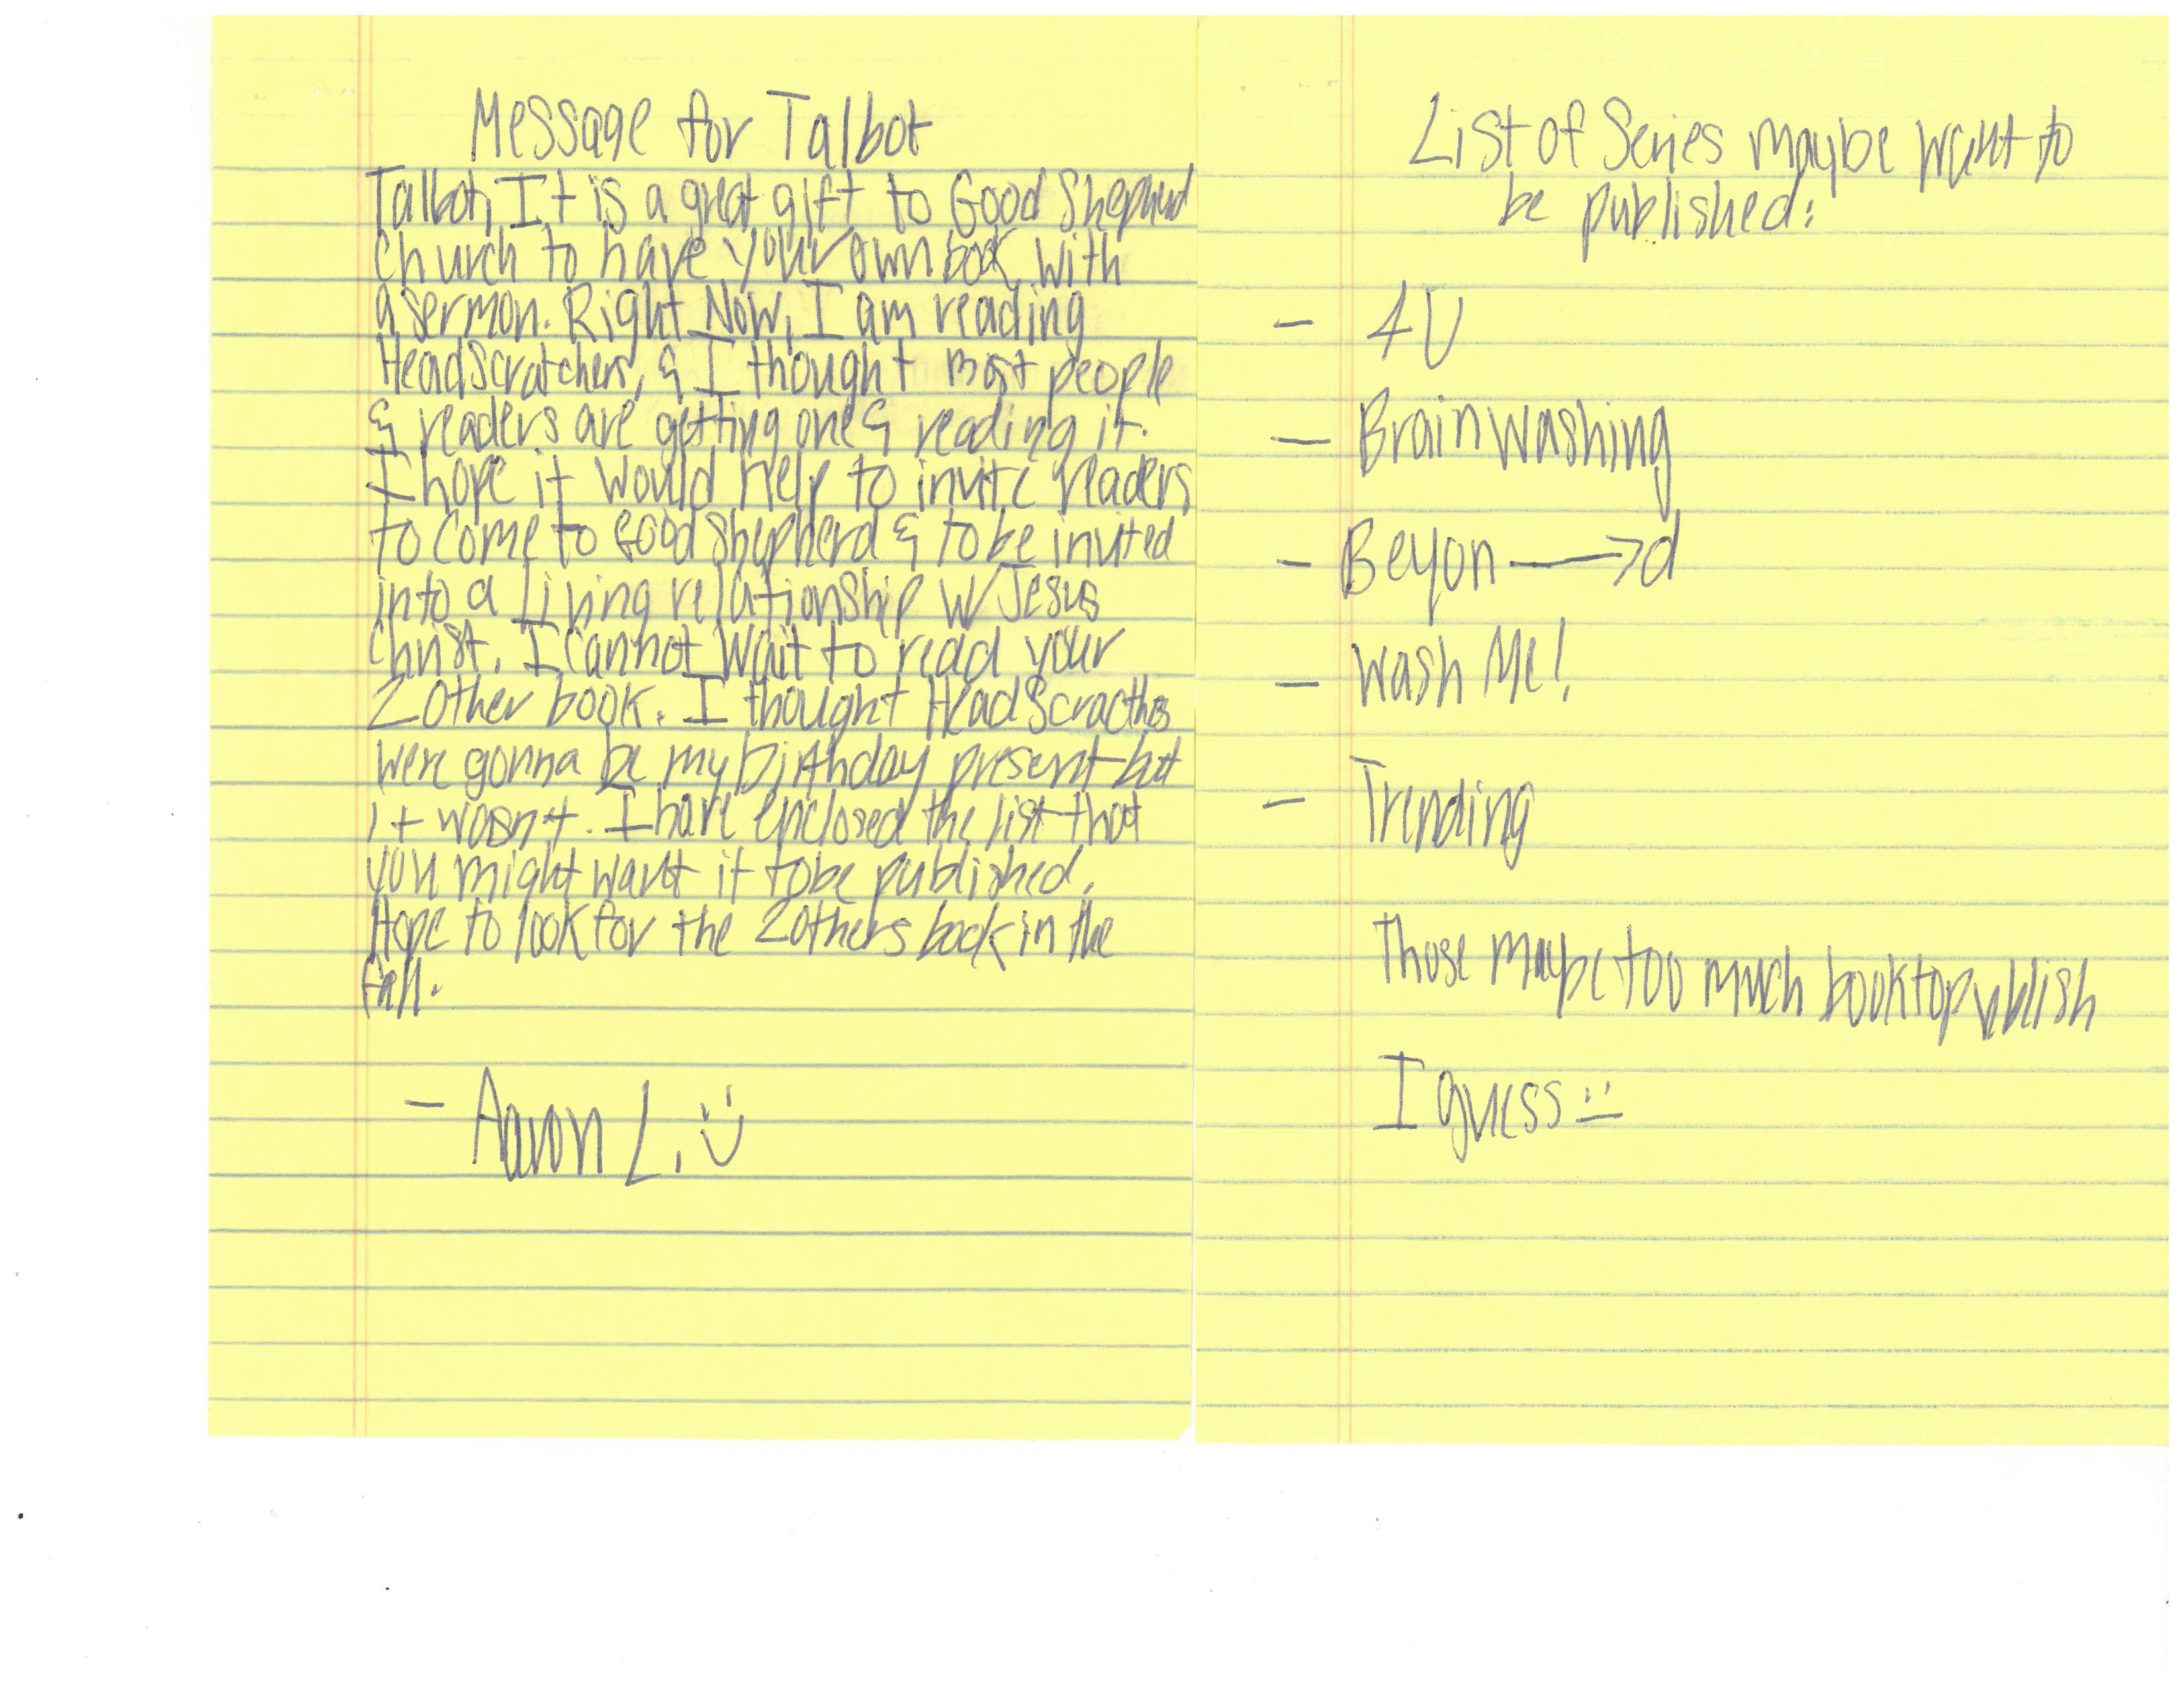 Message for Talbot
Talbot, It is a great gift to Good Shepherd
Church to have your own book with
a sermon. Right Now, I am reading
HeadScratchers, & I thought most people
& readers are getting one & reading it.
I hope it would help to invite readers
to come to Good Shepherd & to be invited
into a living relationship w/ Jesus
Christ. I cannot wait to read your
2 other book. I thought HeadScracthes
were gonna be my birthday present but
it wasn't. I have enclosed the list that
you might want it to be published.
Hope to look for the 2 others book in the
Fall.
- Aaron L. :)
List of Series maybe want to
be published:
- 4U
- Brainwashing
- Beyon→d
- Wash Me!
- Trending
Those maybe too much book to publish
I guess :|